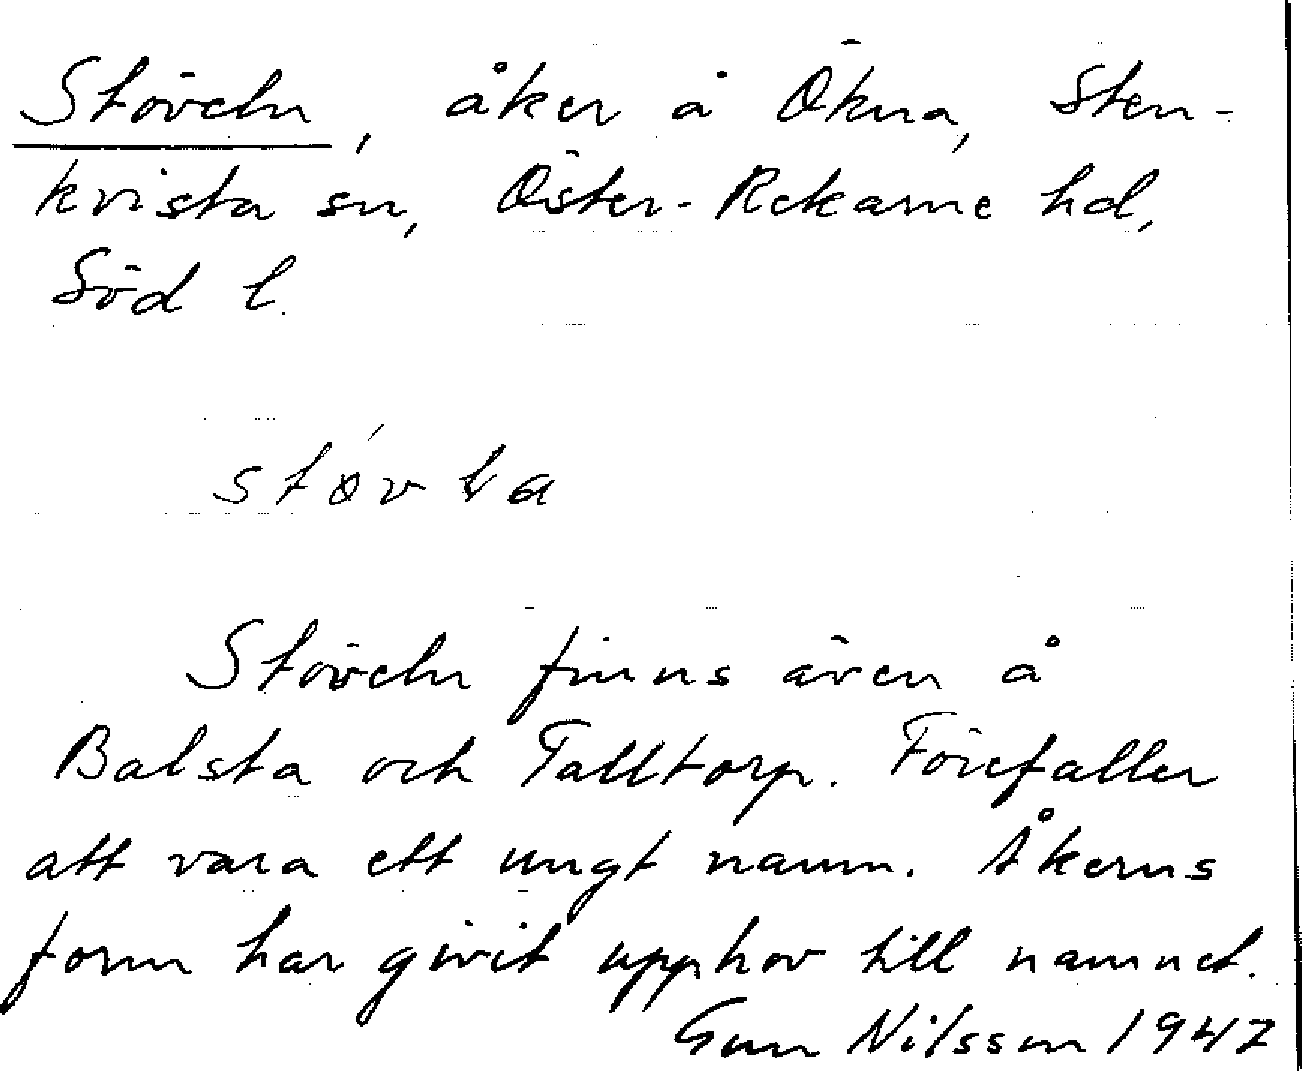 Stöveln, åker å Ökna, Sten-
kvista sn, Öster-Rekarne hd,
Söd l.
Stöveln finns även å
Balsta och Talltorp. Förefaller
att vara ett ungt namn. Åkerns
form har givit upphov till namnet.
Gun Nilsson 1947